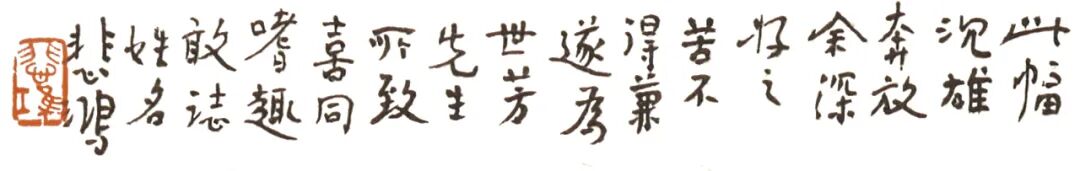 此幅
沉雄
奔放
余深
好之
苦不
得兼
遂为
世芳
先生
所致
喜同
嗜趣
敢誌
姓名
悲鴻